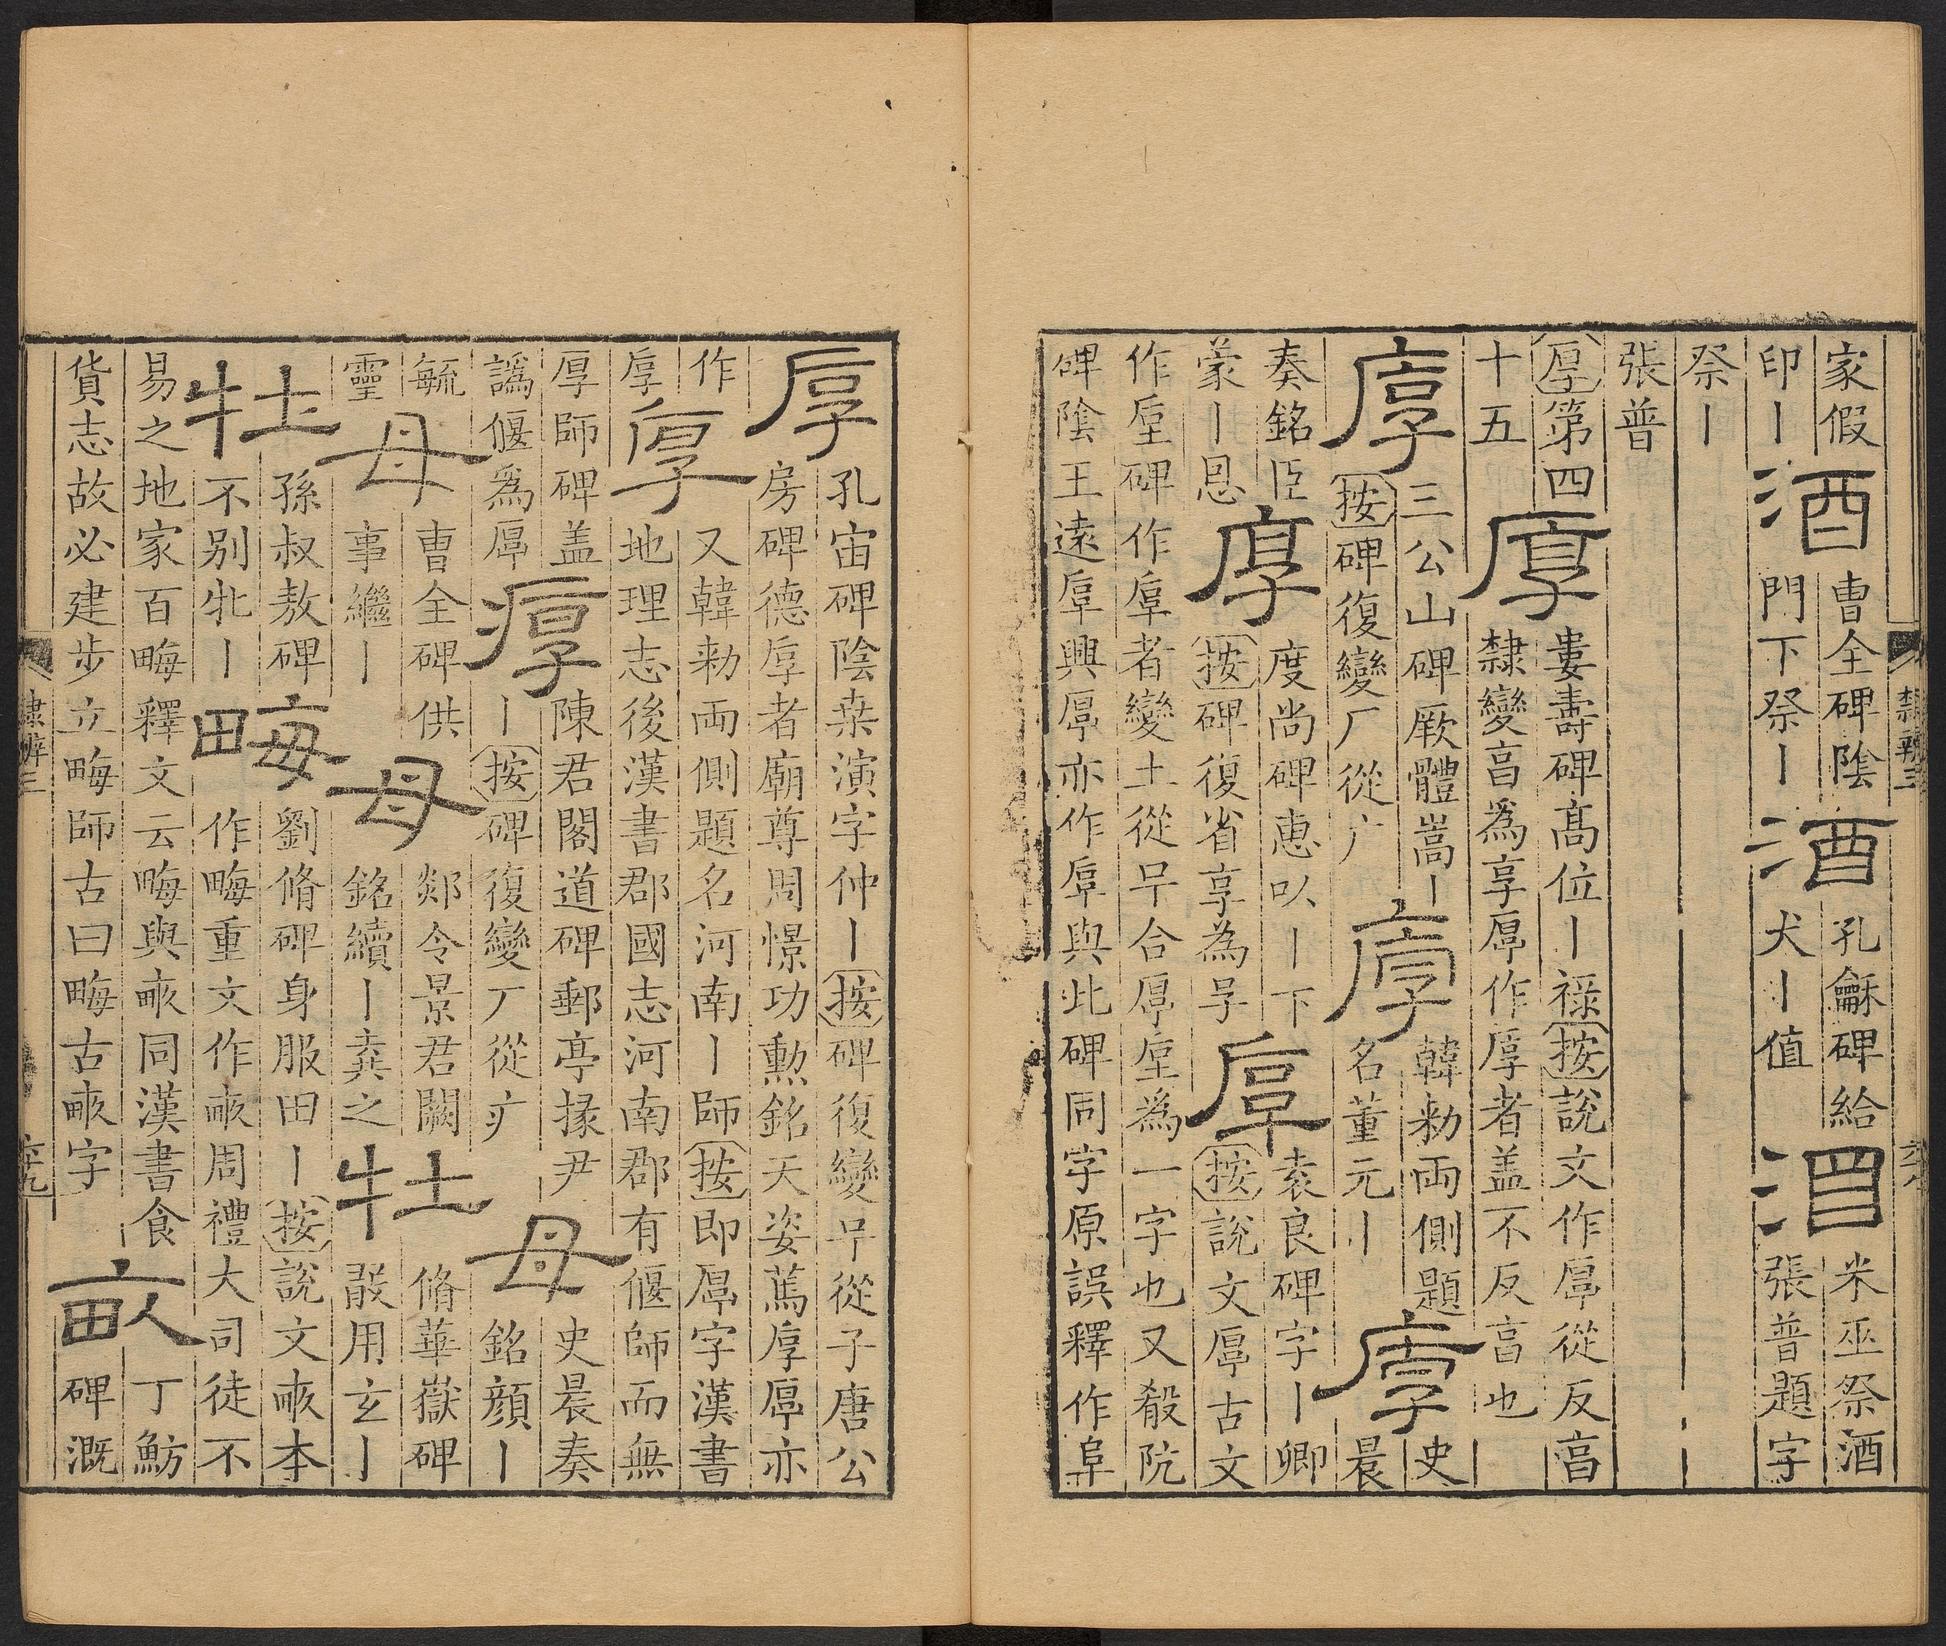 家假
印丨
酒
曹全碑陰
門下祭丨
酒
孔龢碑給
犬丨值
酒
米巫祭酒
張普題字
祭丨
張普
厚第四
十五
厚
婁壽碑髙位丨祿按說文作厚從反亯
隸變亯爲享厚作厚者盖不反亯也
厚
三公山碑厥體嵩丨
按碑復變厂從广
厚
韓勑兩側題
名董元丨
厚
史
晨
奏銘臣
蒙丨恩
厚
度尚碑惠㕥丨下
按碑復省享為
厚
袁良碑字丨卿
按說文厚古文
作垕碑作厚者變土從合厚垕為一字也又殽阬
碑陰王遠厚興厚亦作厚與此碑同字原誤釋作𨸏
厚
孔宙碑陰桒演字仲丨按碑復變從子唐公
房碑德厚者廟尊周憬功勲銘天姿萬厚厚亦
作
厚
厚
又韓勑兩側題名河南丨師按即厚字漢書
地理志後漢書郡國志河南郡有偃師而無
厚師碑盖
譌偃爲厚
厚
陳君閣道碑郵亭掾尹
丨按碑復變厂從疒
母
史晨奏
銘顏丨
毓
靈
母
曹全碑供
事繼丨
母
郯令景君闕
銘續丨龔之
牡
脩華嶽碑
㪚用玄丨
牡
孫叔敖碑
不別牝丨
畮
劉脩碑身服田丨按說文畞本
作畮重文作畞周禮大司徒不
易之地家百畮釋文云畮與畞同漢書食
貨志故必建步立畮師古曰畮古畞字
畝
丁魴
碑溉
隸辨三
隸辨三
六九